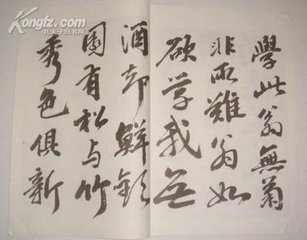 kongfz.com
孔夫子旧书网
學此翁無菊
非所難翁如
欲学我无
酒却鲜歡
園有松与竹
秀色俱新